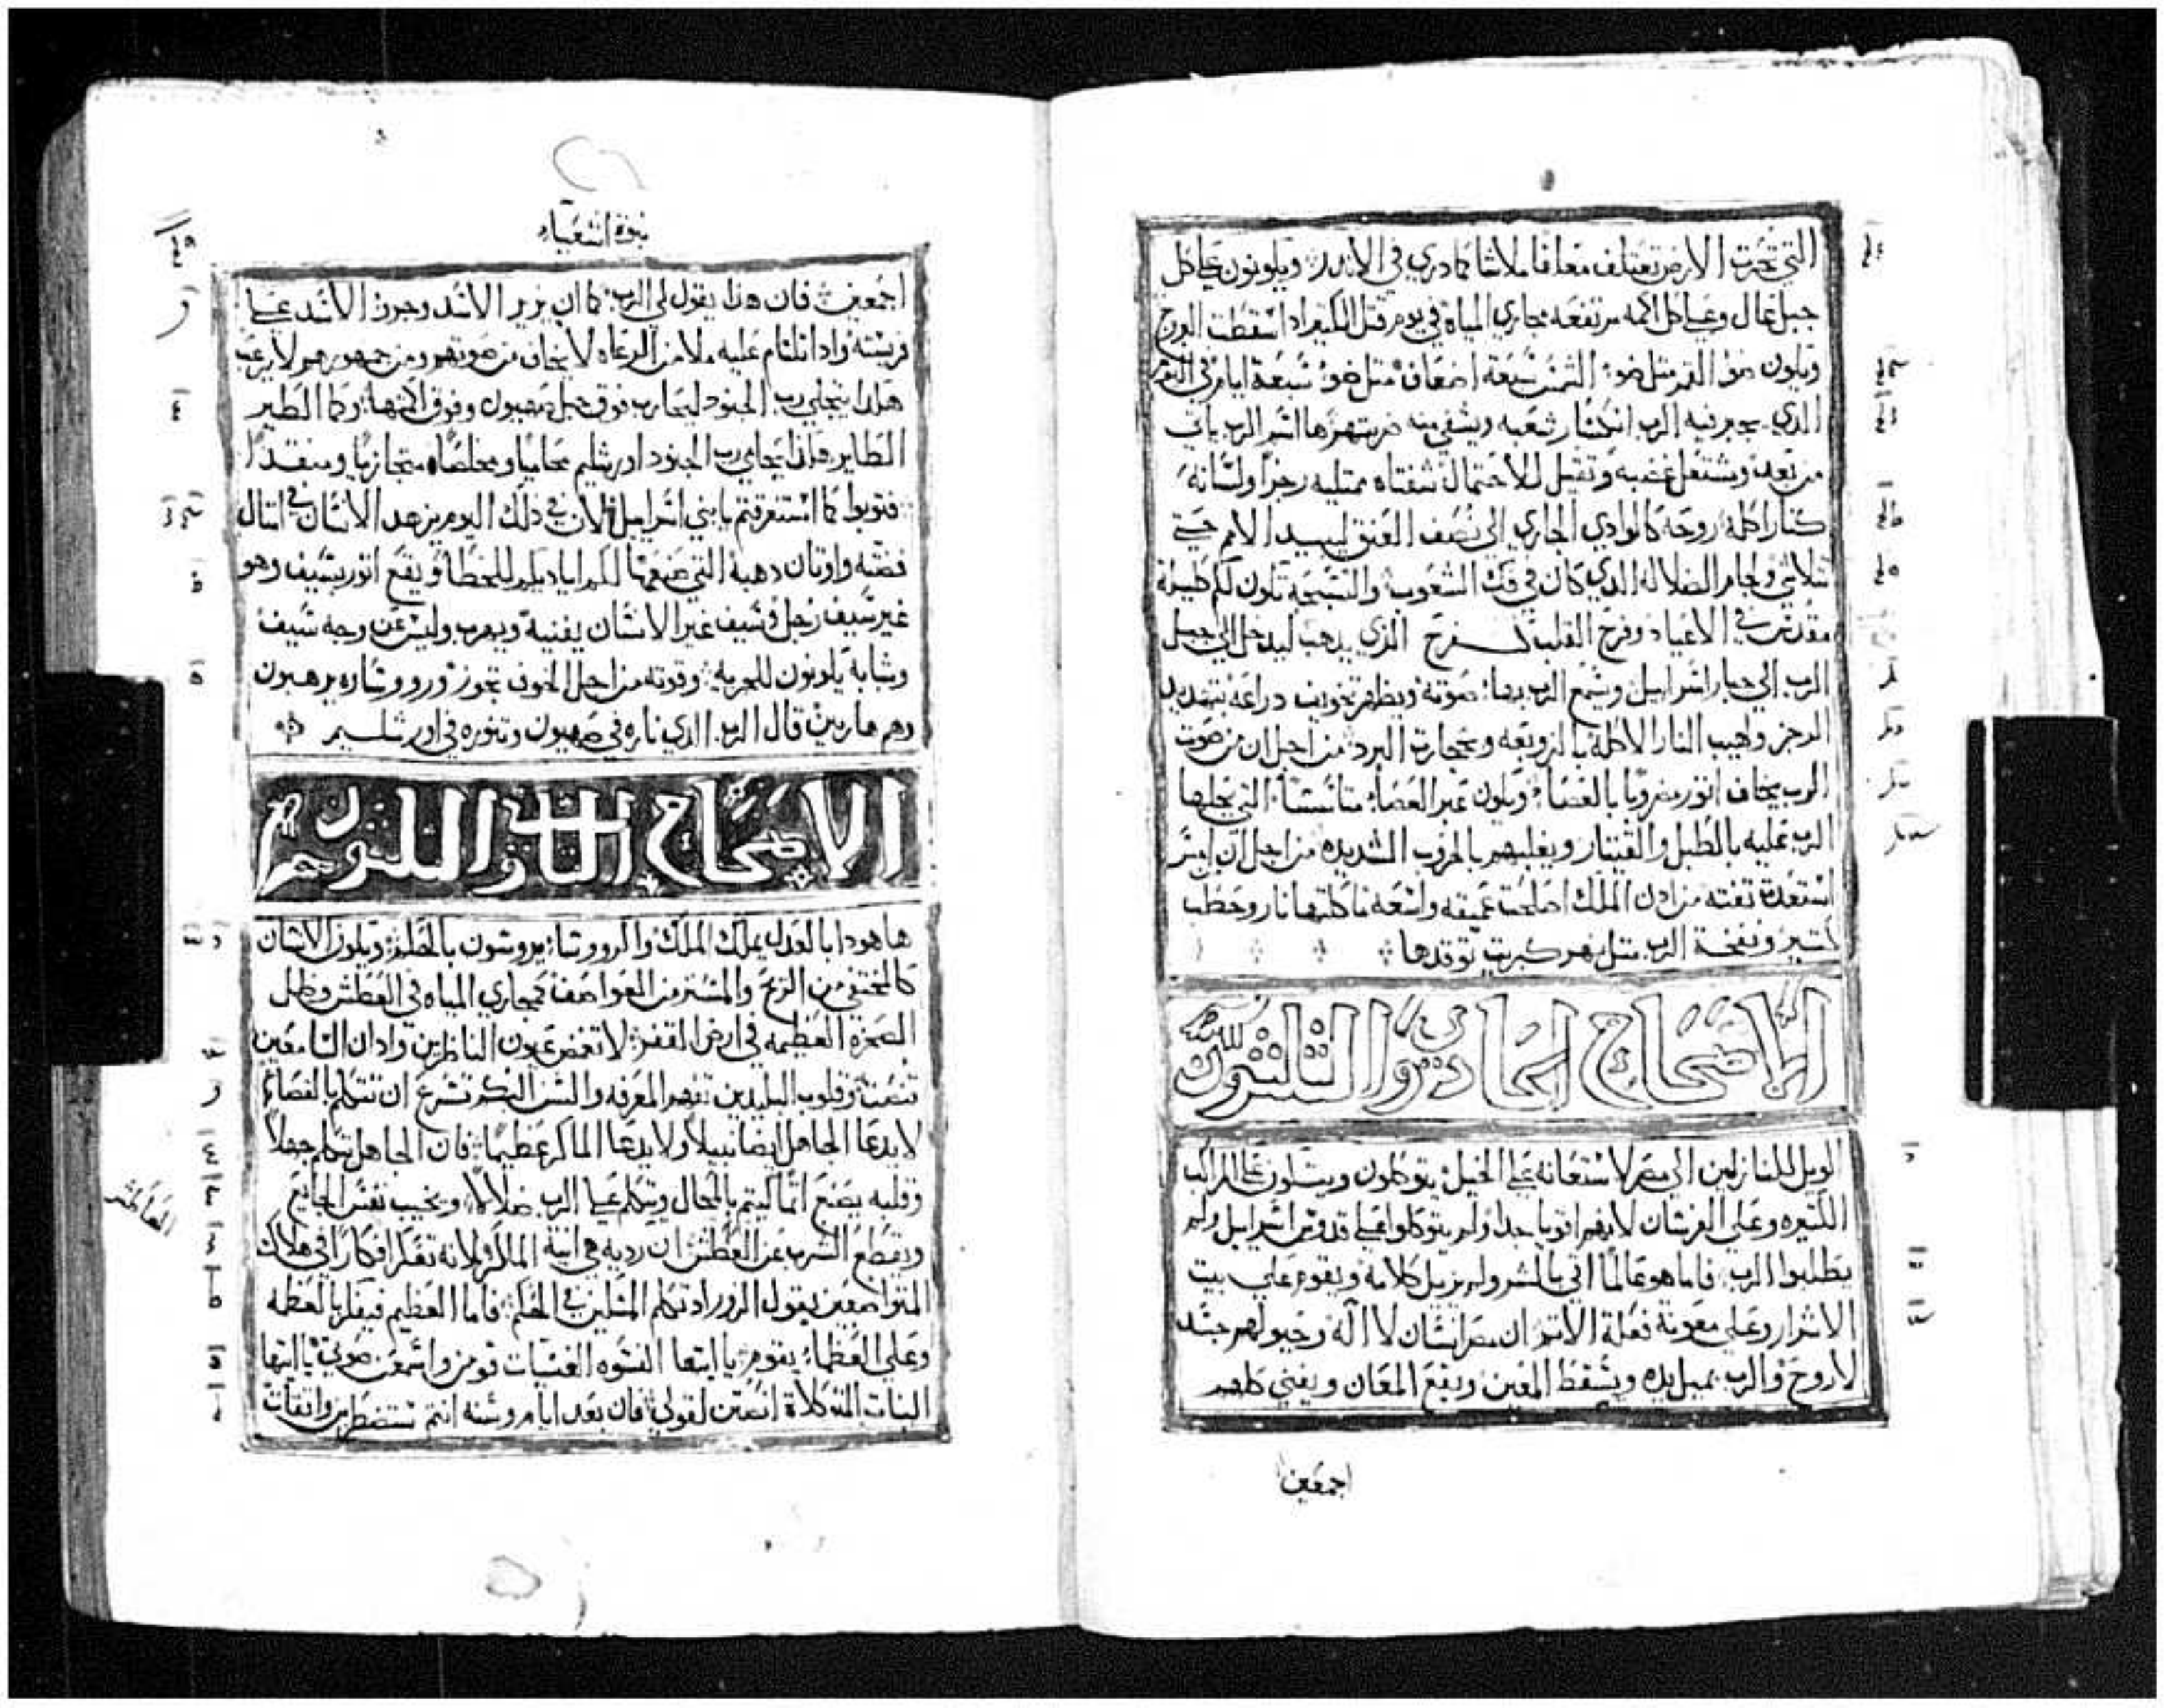 التي تحرت الارض تعتلف معلفا ملاشا كما دري في الاندر ويكونون علي كل
جبل عال وعلي كل اكمه مرتفعه مجاري المياه في يوم قتل الكثير ادا اسقطت البروج
ويكون ضو القمر مثل ضو الشمس سبعة اضعاف مثل ضو سبعة ايام في اليوم
الدي يجبر فيه الرب انكسار شعبه ويشفي منه ضربتهم ها اسم الرب يات
من بعد ويشتعل غضبه وتقيل للاحتمال شفتاه ممتليه رجزا ولسانه
كنار اكله روحه كالوادي الجاري الي نصف العنق ليبيد الامم حتي
تتلاشي ولجام الضلاله الدي كان في فك الشعوب والتسبحه تكون لكم كليلة
مقدس في الاعياد وفرح القلب كفرح الدي يدهب ليدخل الي جبل
الرب الي جبار اسراييل ويسمع الرب بها صوته ويظهر تخويف دراعه بتهديد
الرجز ولهيب النار الاكله بالزوبعه وبحجارة البرد من اجل ان من صوت
الرب يخاف اتور مضروبا بالعصا ويكون عبر العصا متاسسا التي يحلها
الرب عليه بالطبل والقيتار ويغلبهم بالحروب الشديده من اجل ان امس
استعدت تفته من لدن الملك اصلحت عميقه واسعه ماكلتها نار وحطب
كتير ونفخة الرب متل نهر كبريت توقدها
الاصحاح الحادي والثلثون
الويل للنازلين الي مصر لاستعانه علي الخيل يتوكلون ويتكلون علي المراكب
الكتيره وعلي الفرسان لانهم اقويا جدا ولم يتوكلوا علي قدوس اسراييل ولم
يطلبوا الرب فاما هو عالما اتي بالشر ولم يزيل كلامه ويقوم علي بيت
الاشرار وعلي معونة فعلة الاتم ان مصر انسان لا اله وخيولهم جسد
لا روح والرب يميل يده ويسقط المعين ويقع المعان ويفني كلهم
اجمعين
نبوة اشعياء
اجمعين فان هذا يقول لي الرب كما ان يزير الاسد وجرو الاسد علي
فريسته وادا التام عليه ملا من الرعاه لا يخاف من صوتهم ومن جمهورهم لا يرعب
هكدا ينجلي رب الجنود ليحارب فوق جبل صهيون وفوق اكمتها وكما الطير
الطاير هكدا يحامي رب الجنود اورشليم محاميا ومخلصا متجازيا ومنقدا
فتوبوا كما استغرقتم يا بني اسراييل لان في ذلك اليوم يزهد الانسان في امتال
فضته واوتان دهبه التي صنعتها لكم اياديكم للخطا ويقع اتور بسيف وهو
غير سيف رجل وسيف غير الانسان يفنيه ويهرب وليس عن وجه سيف
وشبابه يكونون للجزيه وقوته من اجل الخوف تجوز ورووساره يرهبون
وهم هاربين قال الرب الدي ناره في صهيون وتنوره في اورشليم
الاصحاح الثاني والثلثون
ها هودا بالعدل يملك الملك والروسا يروسون بالحكم ويكون الانسان
كالمختفي من الريح والمستتر من العواصف كمجاري المياه في العطش وظل
الصخره العظيمه في ارض القفر لا تغمض عيون الناظرين وادان السامعين
تنصت وقلوب البليدين تفهم المعرفه والسن البكم تسرع ان تتكلم بالفصاحه
لا يدعا الجاهل ايضا نبيلا ولا يدعا الماكر عظيما فان الجاهل يتكلم جهلا
وقلبه يصنع اتما ليتم بالمحال ويتكلم علي الرب ضلالا ويخيب نفس الجايع
ويقطع الشرب عن العطش ان رديه هي انية الماكر لانه تفكر افكارا في هلاك
المتواضعين بقول الزور اد تكلم المسكين في الحكم فاما العظيم فيفكر بالعظمه
وعلي العظما يقوم يا ايتها النسوه الغنيات قومن واسمعن صوتي يا ايتها
البنات المتوكلات انصتن لقولي فان بعد ايام وسنه انتم تستضطربن واتقات